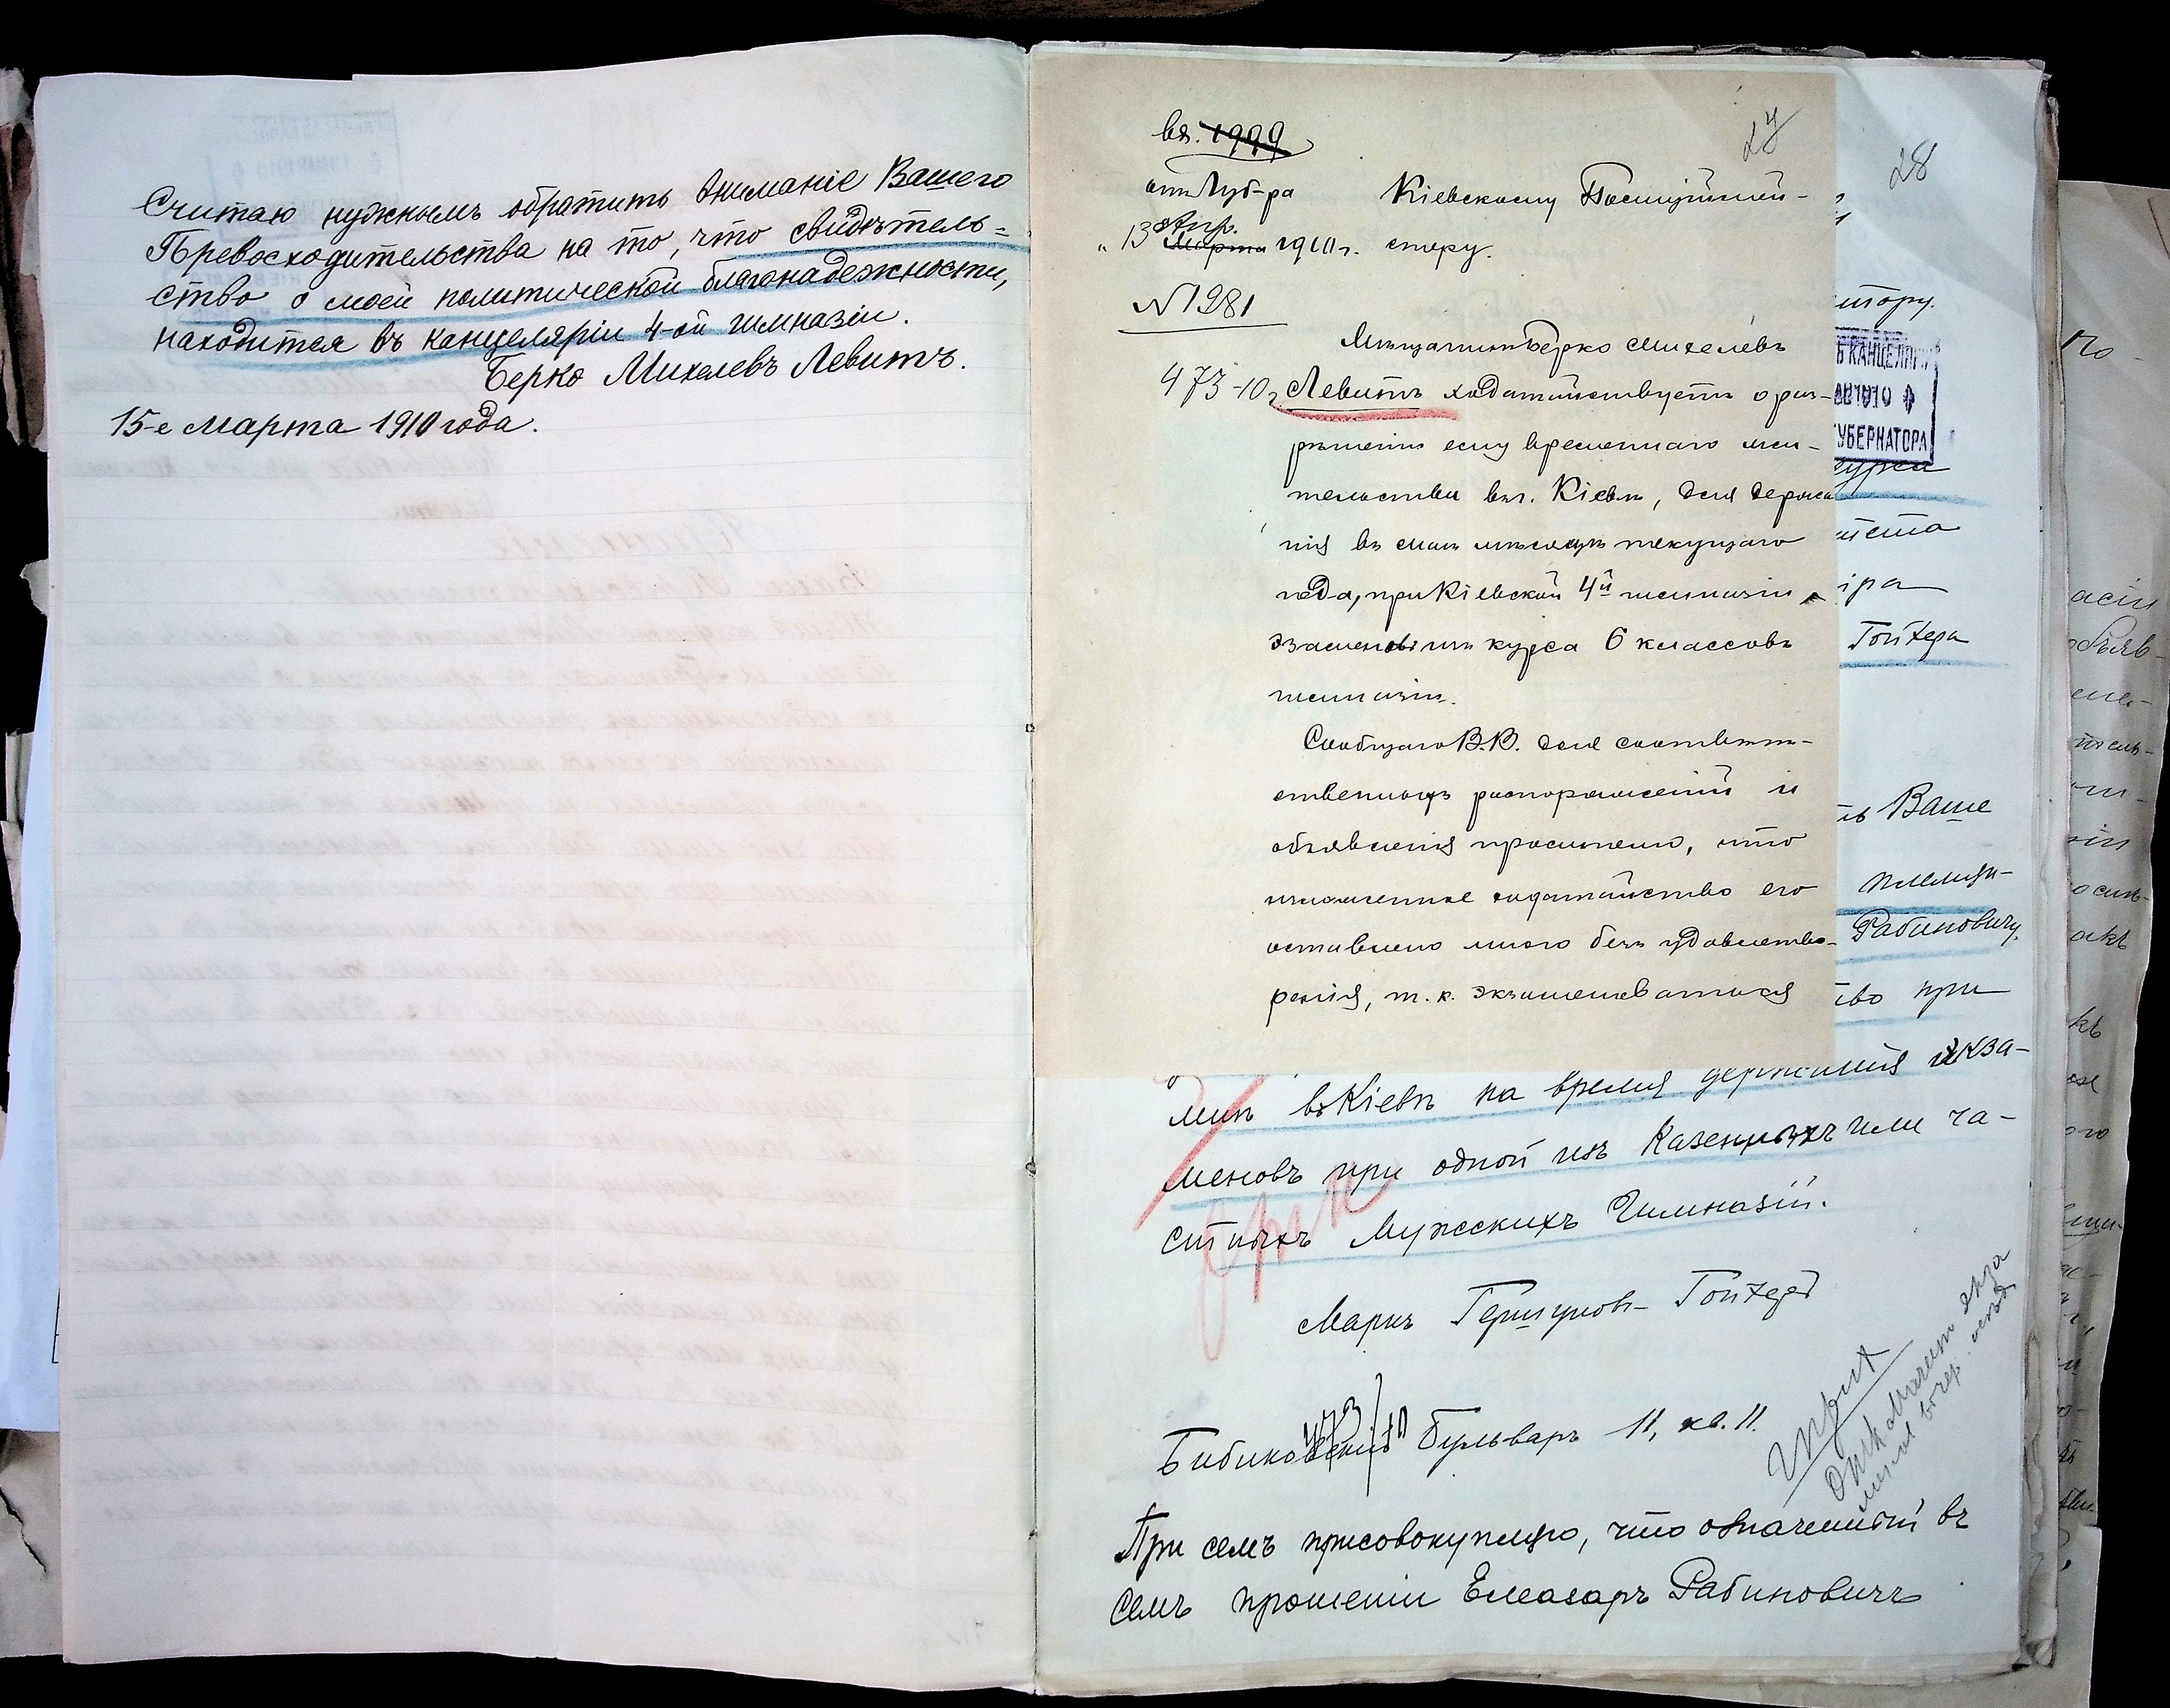 Считаю нужнымъ обратить вниманіе Вашего
Превосходительства на то, что свидѣтель=
ство о моей политической благонадежности,
находится въ канцеляріи 4-ой гимназіи.
Берко Михелевъ Левитъ.
15-е Марта 1910 года.
вх. 1999
27
отъ Губ-ра
Кіевскому Полиціймей-
"13 Апр.
Марта 1910 г.
стеру.
N 1981
Мѣщанинъ Берко Михелевъ
473-10 г.
Левитъ ходатайствуетъ о раз-
рѣшеніи ему временнаго жи-
тельства въ г. Кіевѣ, для держа
нія въ маѣ мѣсяцѣ текущаго
года, при Кіевской 4й гимназіи
экзаменовъ изъ курса 6 классовъ
гимназіи.
Сообщаю В.В. для соотвѣт-
ственныхъ распоряженій и
объявленія просителю, что
изложенное ходатайство его
оставлено мною безъ удовлетво-
ренія, т. к. экзаменоваться
28
итору.
Ъ КАНЦЕЛЯРІ
1910
УБЕРНАТОРА
курса
ира
Гойхера
ть Ваше
племян-
Рабиновичу
тво при
мнѣ въ Кіевѣ на время держанія экза-
меновъ при одной изъ Казенныхъ или ча-
стныхъ Мужскихъ Гимназій.
Маркъ Гершуновъ-Гойхеръ
473/10
Бибиковскій Бульваръ 11, кв. 11.
При семъ присовокупляю, что означенный въ
семъ прошеніи Елеазаръ Рабиновичъ